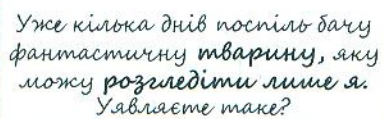 Уже кілька днів поспіль бачу
фантастичну тварину, яку
можу розгледіти лише я.
Уявляєте таке?